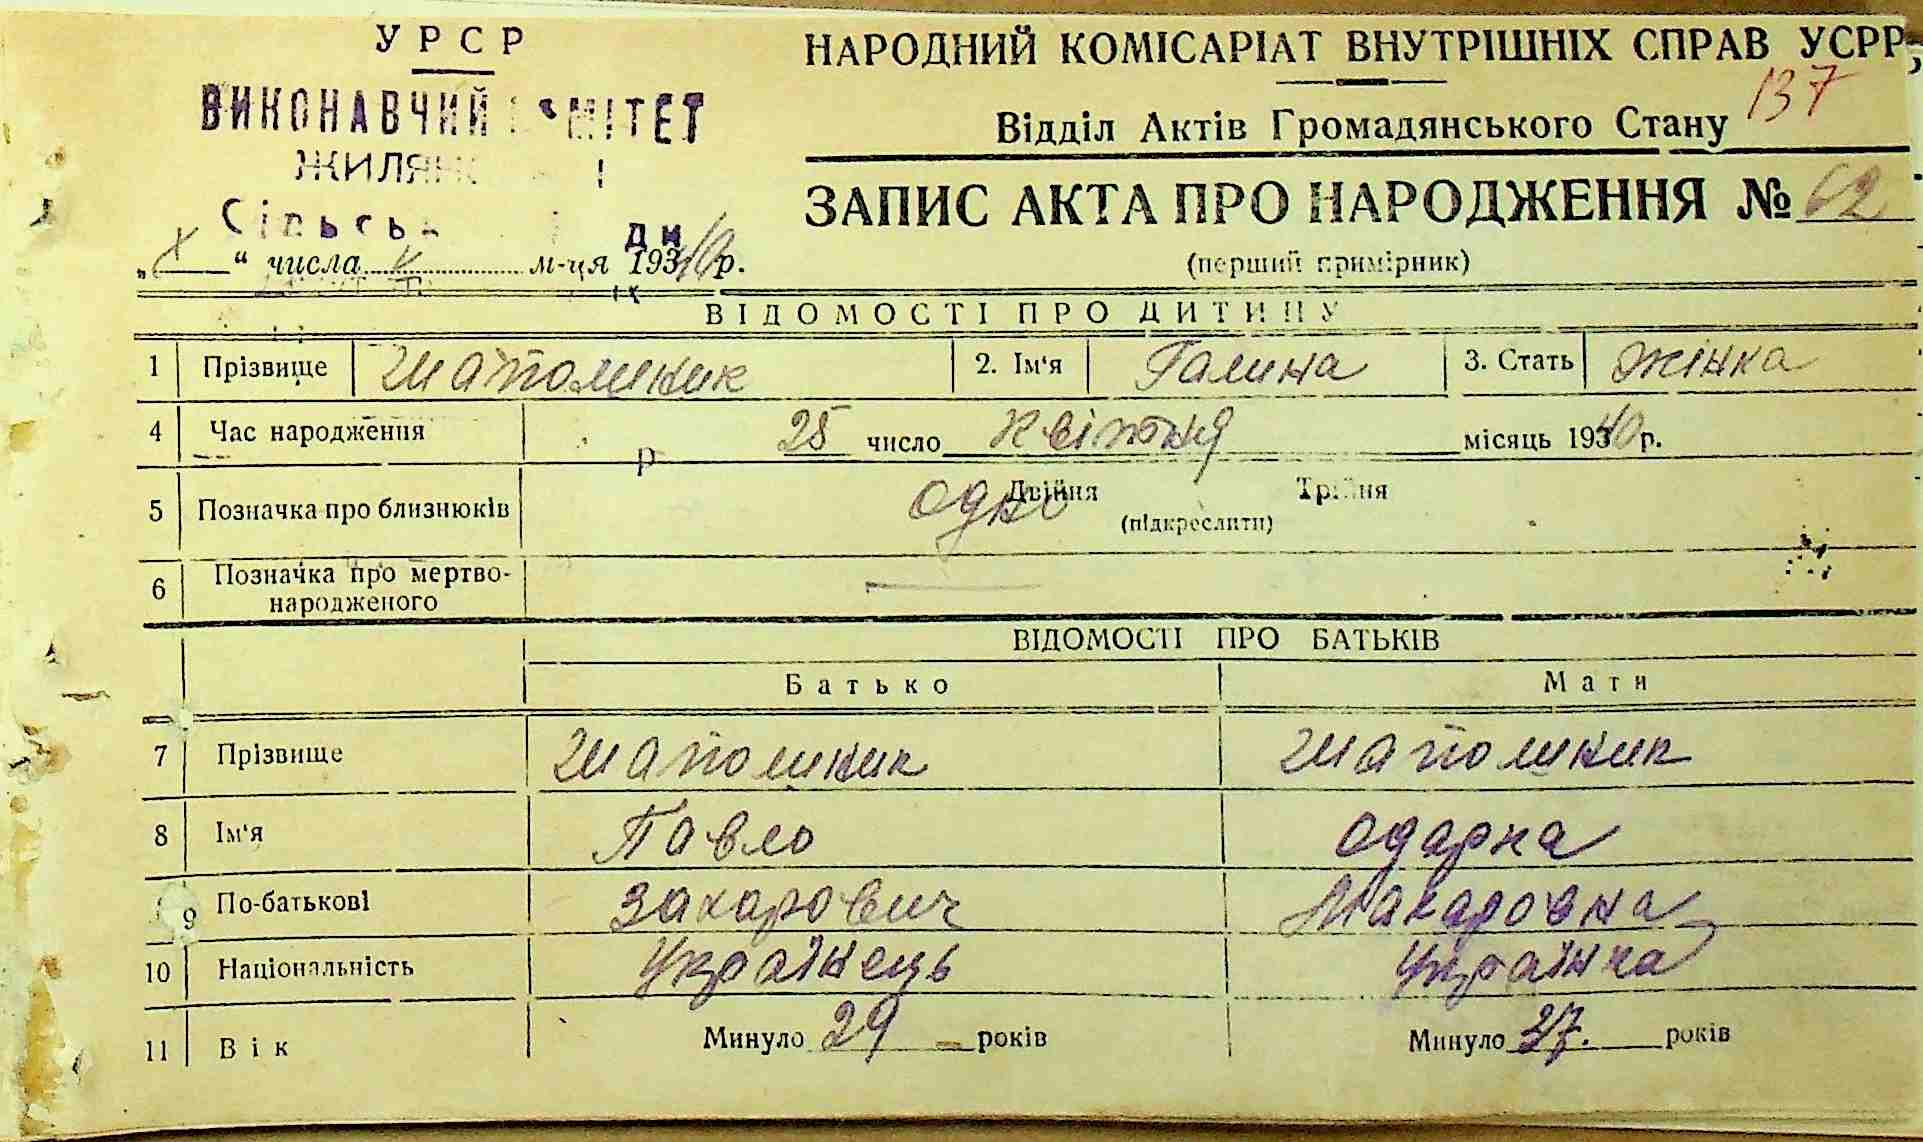 УРСР
ВИКОНАВЧИЙ КОМІТЕТ
НАРОДНИЙ КОМІСАРІАТ ВНУТРІШНІХ СПРАВ УСРР,
137
Відділ Актів Громадянського Стану
ЗАПИС АКТА ПРО НАРОДЖЕННЯ № 62
(перший примірник)
„X“ числа V м-ця 1940 р.
ВІДОМОСТІ ПРО ДИТИНУ
1 Прізвище Шаполиник 2. Ім'я Галина 3. Стать жінка
4 Час народження 25 число квітня місяць 1940 р.
5 Позначка про близнюків одно Двійня Трійня
(підкреслити)
6 Позначка про мертво-
народженого
ВІДОМОСТІ ПРО БАТЬКІВ
Батько Мати
7 Прізвище Шаполиник Шаполиник
8 Ім'я Павло Одарка
9 По-батькові Захарович Макаровна
10 Національність Українець Українка
11 Вік Минуло 29 років Минуло 27. років